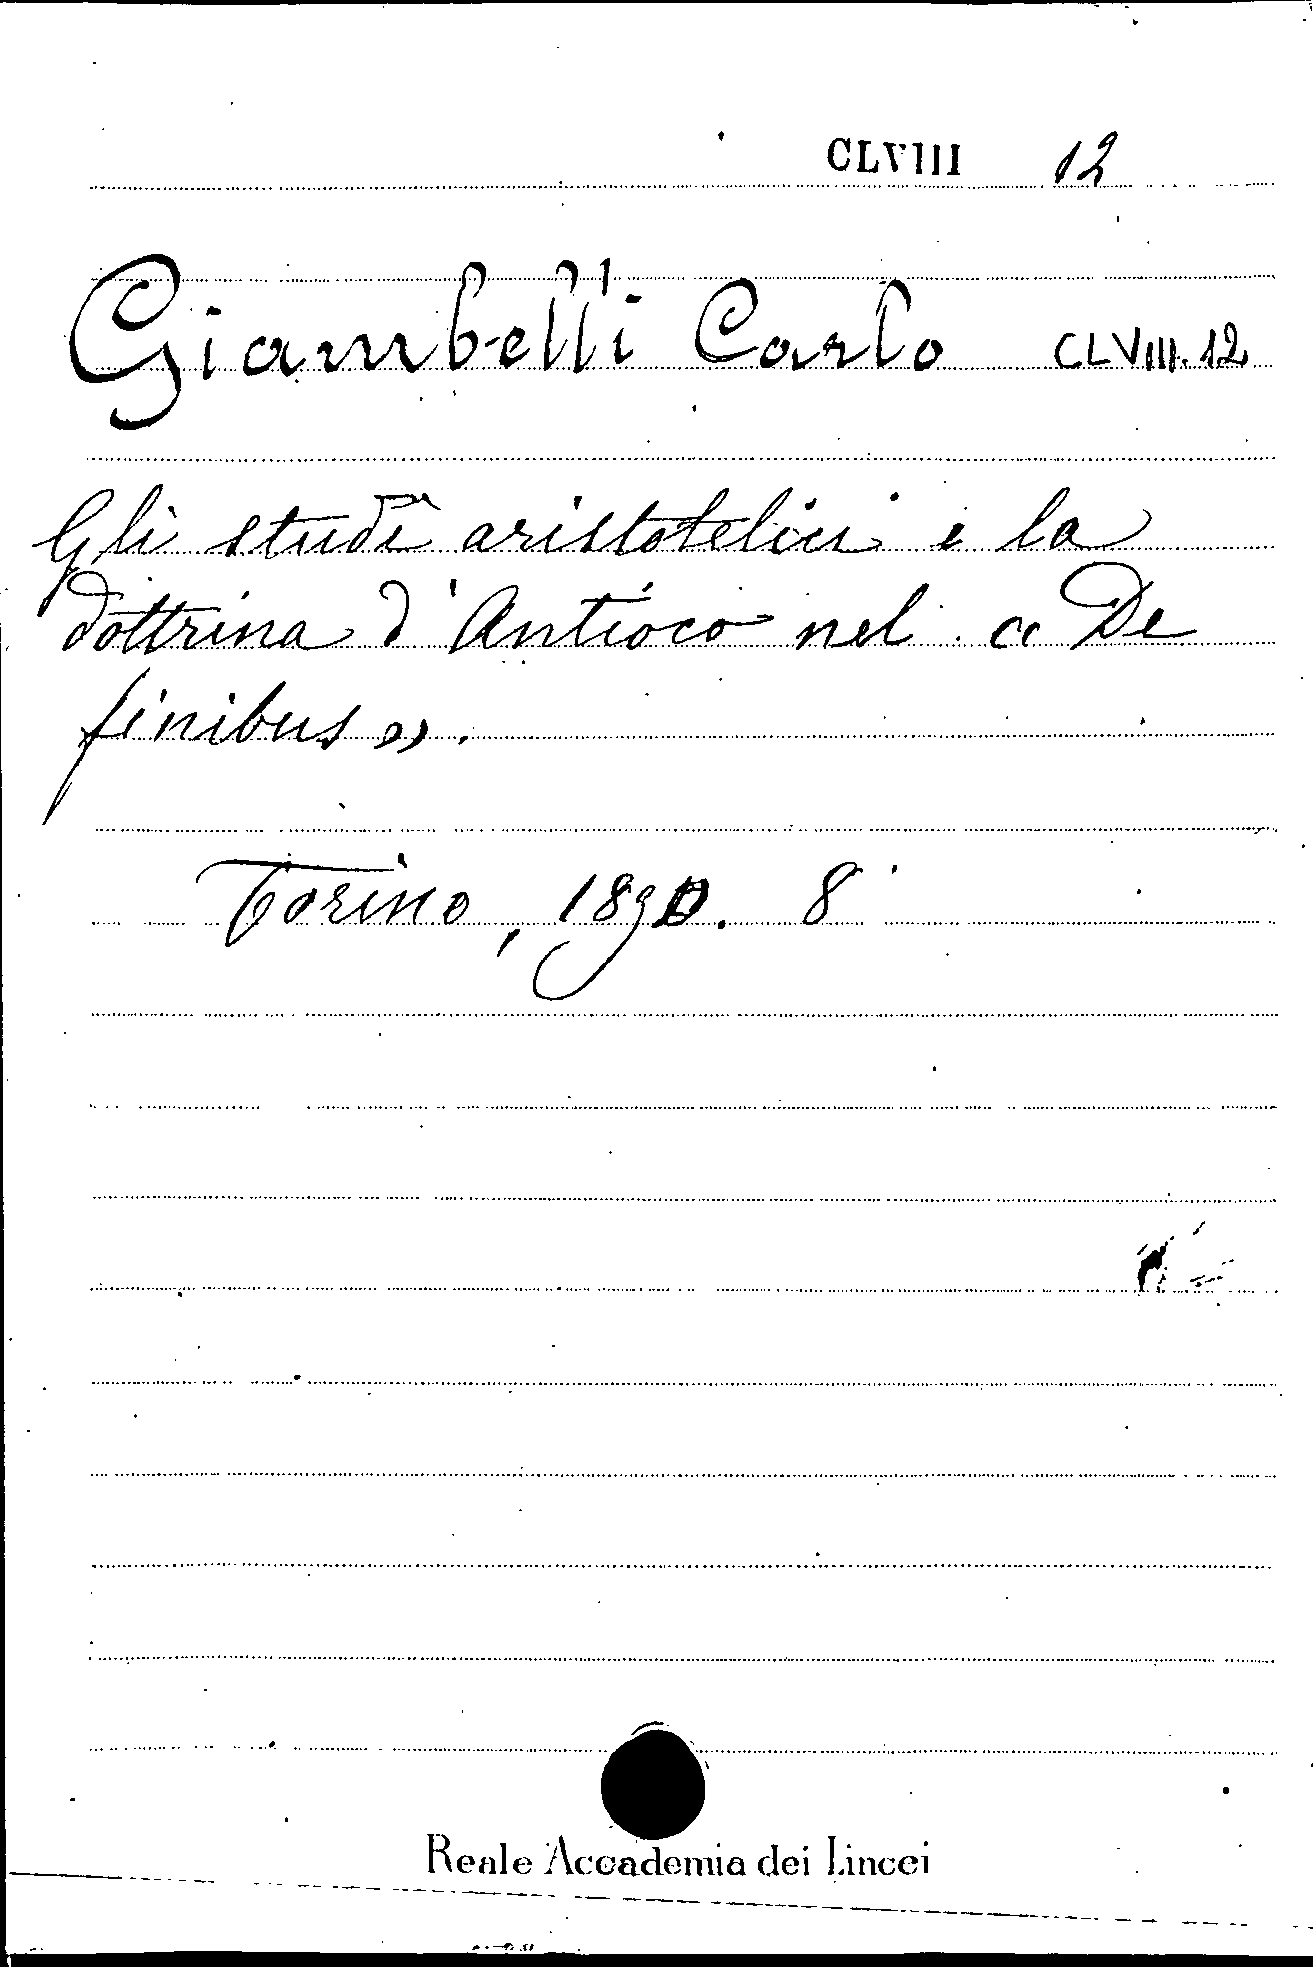 CLVIII 12
Giambelli Carlo CLVIII.12
Gli studi aristotelici e la
dottrina d'Antioco nel « De
finibus ».
Torino, 1890. 8°
Reale Accademia dei Lincei